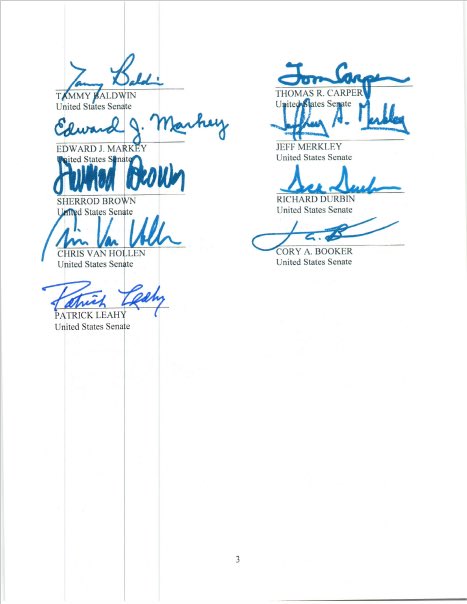 Tammy Baldwin
TAMMY BALDWIN
United States Senate
Tom Carper
THOMAS R. CARPER
United States Senate
Edward J. Markey
EDWARD J. MARKEY
United States Senate
Jeffrey A. Merkley
JEFF MERKLEY
United States Senate
Sherrod Brown
SHERROD BROWN
United States Senate
Dick Durbin
RICHARD DURBIN
United States Senate
Chris Van Hollen
CHRIS VAN HOLLEN
United States Senate
CORY A. BOOKER
United States Senate
Patrick Leahy
PATRICK LEAHY
United States Senate
3